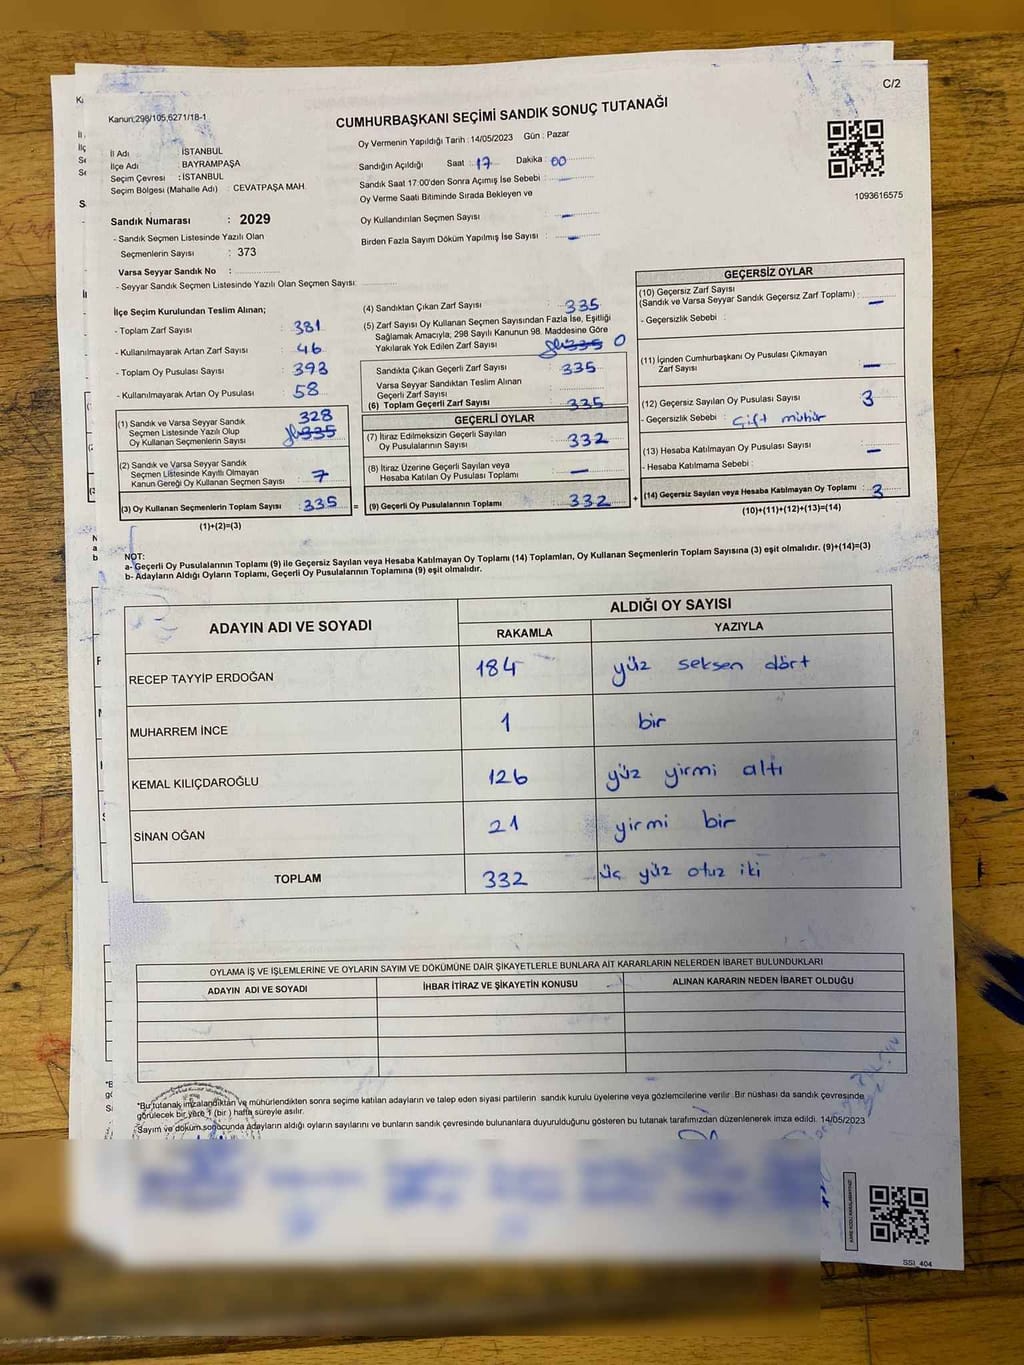 C/2
Kanun;298/105,6271/18-1
CUMHURBAŞKANI SEÇİMİ SANDIK SONUÇ TUTANAĞI
Oy Vermenin Yapıldığı Tarih : 14/05/2023 Gün : Pazar
İl Adı : İSTANBUL
İlçe Adı : BAYRAMPAŞA
Seçim Çevresi : İSTANBUL
Seçim Bölgesi (Mahalle Adı) : CEVATPAŞA MAH.
Sandığın Açıldığı Saat : 17 Dakika : 00
Sandık Saat 17:00'den Sonra Açımış İse Sebebi : —
Oy Verme Saati Bitiminde Sırada Bekleyen ve
Oy Kullandırılan Seçmen Sayısı : —
Birden Fazla Sayım Döküm Yapılmış İse Sayısı : —
1093616575
Sandık Numarası : 2029
- Sandık Seçmen Listesinde Yazılı Olan
Seçmenlerin Sayısı : 373
Varsa Seyyar Sandık No :
- Seyyar Sandık Seçmen Listesinde Yazılı Olan Seçmen Sayısı:
İlçe Seçim Kurulundan Teslim Alınan;
- Toplam Zarf Sayısı : 381
- Kullanılmayarak Artan Zarf Sayısı : 46
- Toplam Oy Pusulası Sayısı : 393
- Kullanılmayarak Artan Oy Pusulası : 58
(1) Sandık ve Varsa Seyyar Sandık
Seçmen Listesinde Yazılı Olup
Oy Kullanan Seçmenlerin Sayısı : 328
335
(2) Sandık ve Varsa Seyyar Sandık
Seçmen Listesinde Kayıtlı Olmayan
Kanun Gereği Oy Kullanan Seçmen Sayısı : 7
(3) Oy Kullanan Seçmenlerin Toplam Sayısı : 335 =
(1)+(2)=(3)
(4) Sandıktan Çıkan Zarf Sayısı : 335
(5) Zarf Sayısı Oy Kullanan Seçmen Sayısından Fazla İse, Eşitliği
Sağlamak Amacıyla; 298 Sayılı Kanunun 98. Maddesine Göre
Yakılarak Yok Edilen Zarf Sayısı : 335 0
Sandıkta Çıkan Geçerli Zarf Sayısı : 335
Varsa Seyyar Sandıktan Teslim Alınan
Geçerli Zarf Sayısı :
(6) Toplam Geçerli Zarf Sayısı : 335
GEÇERLİ OYLAR
(7) İtiraz Edilmeksizin Geçerli Sayılan
Oy Pusulalarının Sayısı : 332
(8) İtiraz Üzerine Geçerli Sayılan veya
Hesaba Katılan Oy Pusulası Toplamı : —
(9) Geçerli Oy Pusulalarının Toplamı : 332 +
GEÇERSİZ OYLAR
(10) Geçersiz Zarf Sayısı
(Sandık ve Varsa Seyyar Sandık Geçersiz Zarf Toplamı) : —
- Geçersizlik Sebebi :
(11) İçinden Cumhurbaşkanı Oy Pusulası Çıkmayan
Zarf Sayısı : —
(12) Geçersiz Sayılan Oy Pusulası Sayısı : 3
- Geçersizlik Sebebi : Çift mühür
(13) Hesaba Katılmayan Oy Pusulası Sayısı : —
- Hesaba Katılmama Sebebi :
(14) Geçersiz Sayılan veya Hesaba Katılmayan Oy Toplamı : 3
(10)+(11)+(12)+(13)=(14)
NOT:
a- Geçerli Oy Pusulalarının Toplamı (9) ile Geçersiz Sayılan veya Hesaba Katılmayan Oy Toplamı (14) Toplamları, Oy Kullanan Seçmenlerin Toplam Sayısına (3) eşit olmalıdır. (9)+(14)=(3)
b- Adayların Aldığı Oyların Toplamı, Geçerli Oy Pusulalarının Toplamına (9) eşit olmalıdır.
ADAYIN ADI VE SOYADI
ALDIĞI OY SAYISI
RAKAMLA YAZIYLA
RECEP TAYYİP ERDOĞAN 184 yüz seksen dört
MUHARREM İNCE 1 bir
KEMAL KILIÇDAROĞLU 126 yüz yirmi altı
SİNAN OĞAN 21 yirmi bir
TOPLAM 332 üç yüz otuz iki
OYLAMA İŞ VE İŞLEMLERİNE VE OYLARIN SAYIM VE DÖKÜMÜNE DAİR ŞİKAYETLERLE BUNLARA AİT KARARLARIN NELERDEN İBARET BULUNDUKLARI
ADAYIN ADI VE SOYADI İHBAR İTİRAZ VE ŞİKAYETİN KONUSU ALINAN KARARIN NEDEN İBARET OLDUĞU
*Bu tutanak imzalandıktan ve mühürlendikten sonra seçime katılan adayların ve talep eden siyasi partilerin sandık kurulu üyelerine veya gözlemcilerine verilir. Bir nüshası da sandık çevresinde
görülecek bir yere 1 (bir ) hafta süreyle asılır.
Sayım ve döküm sonucunda adayların aldığı oyların sayılarını ve bunların sandık çevresinde bulunanlara duyurulduğunu gösteren bu tutanak tarafımızdan düzenlenerek imza edildi. 14/05/2023
SSI_404